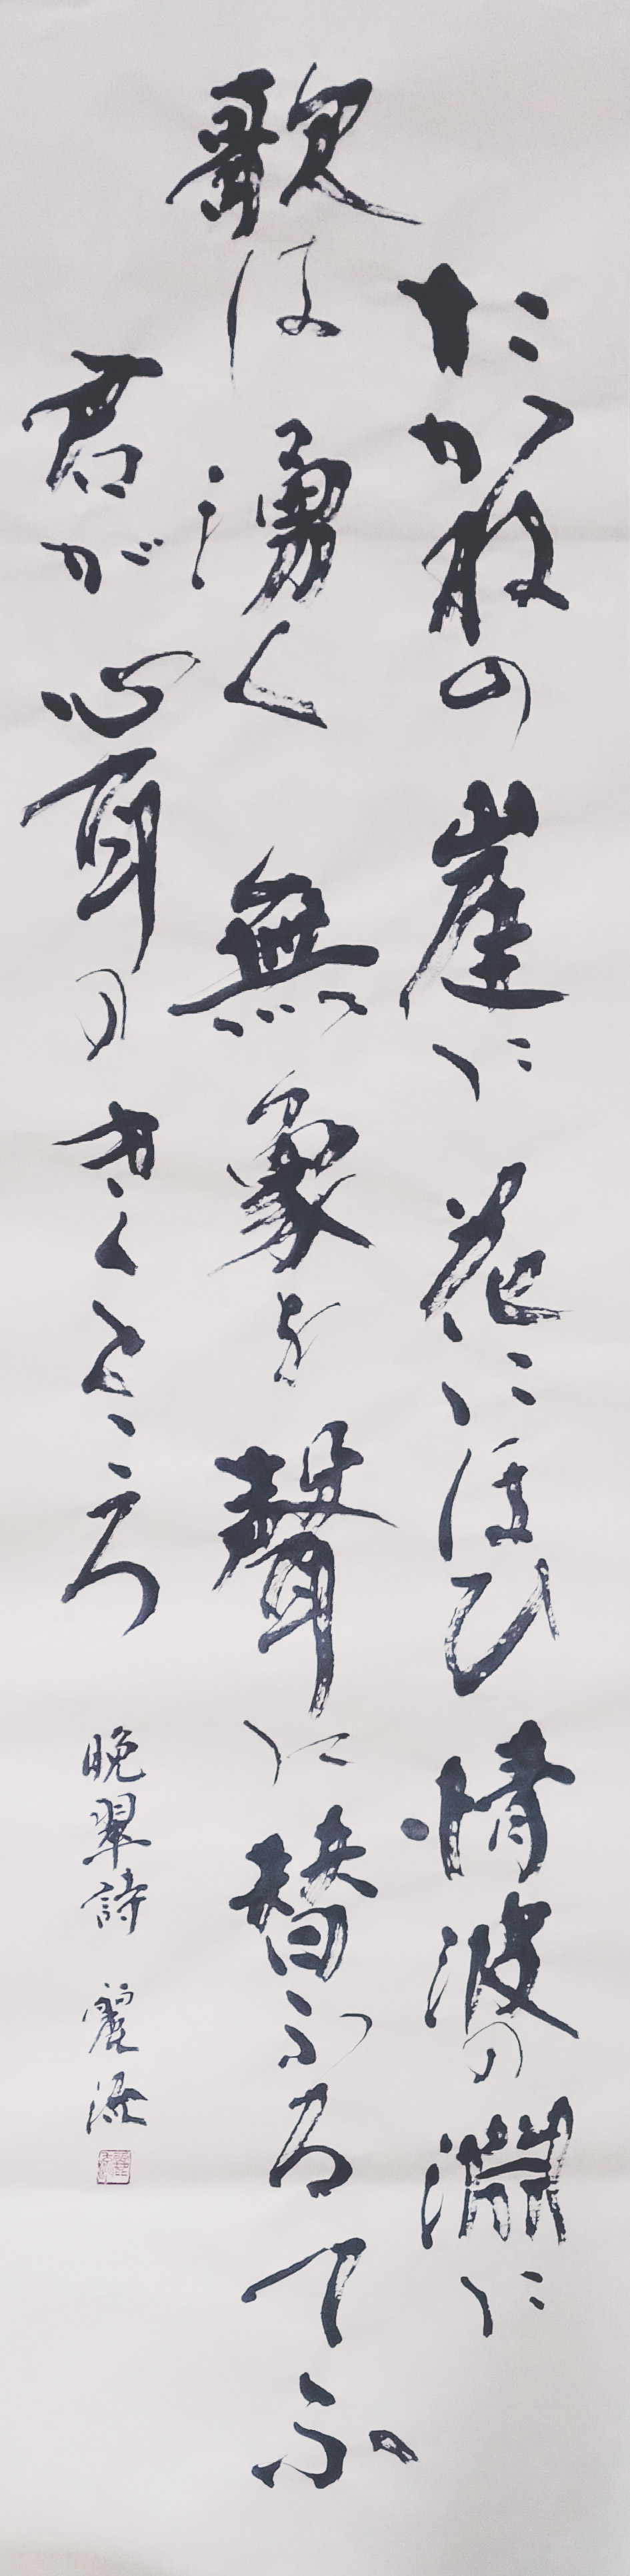 たかねの崖に花にほひ情波の淵に
歌は湧く無象を聲に替ふるてふ
君が心耳のきくところ
晩翠詩 麗